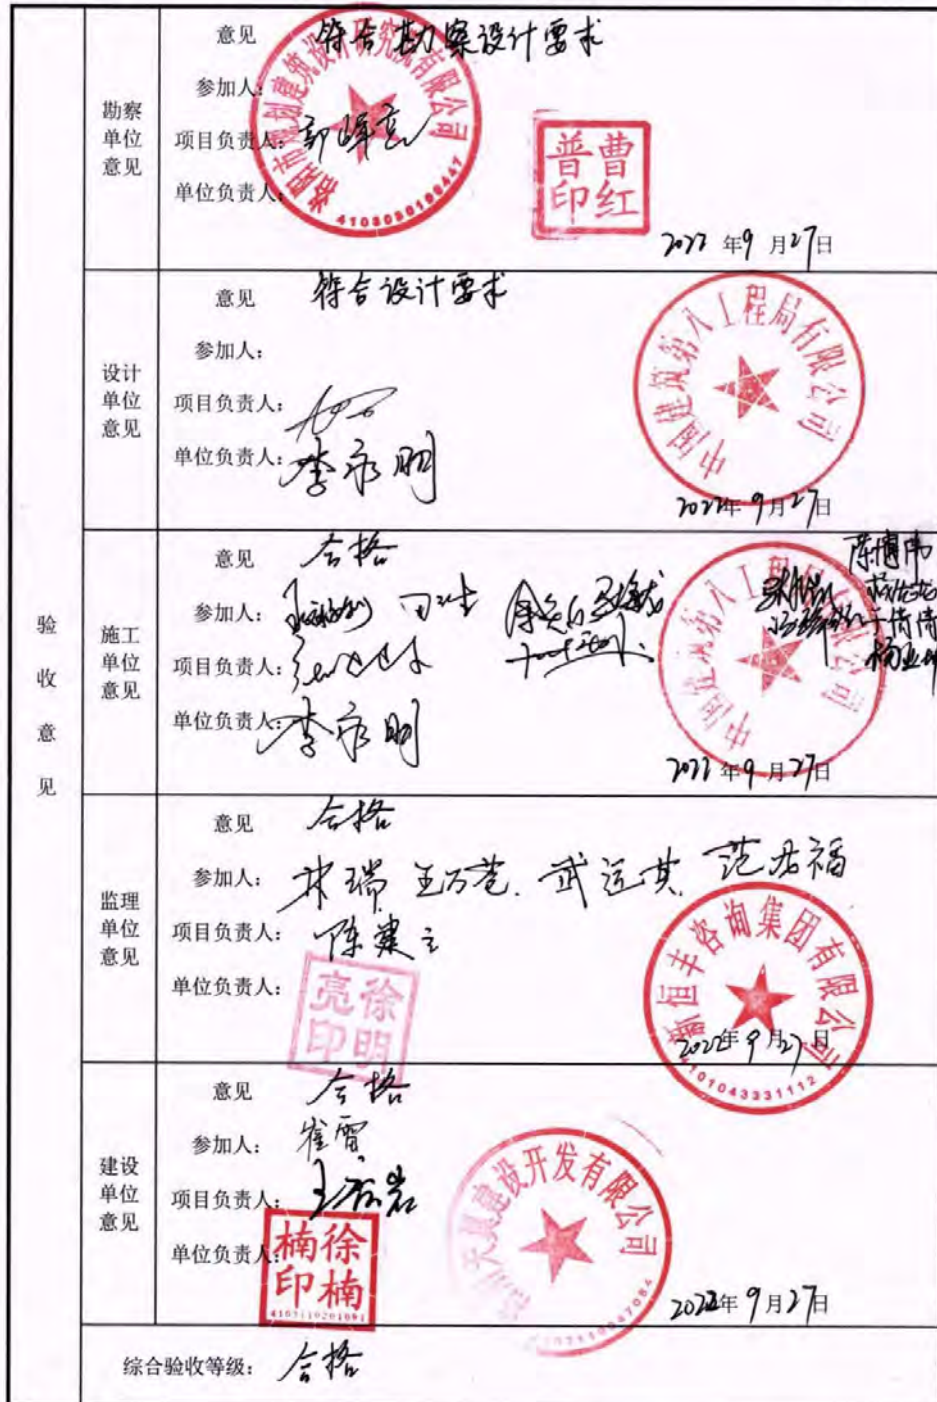 验收意见
勘察单位意见
意见 符合勘察设计要求
参加人:
项目负责人:
单位负责人:
洛阳市规划建筑设计研究院有限公司
曹红普印
2022年9月27日
设计单位意见
意见 符合设计要求
参加人:
项目负责人:
单位负责人: 李永明
中国建筑第八工程局有限公司
2022年9月27日
施工单位意见
意见 合格
参加人:
项目负责人:
单位负责人: 李永明
中国建筑第八工程局有限公司
2022年9月27日
监理单位意见
意见 合格
参加人: 林瑞 王万苍. 武运其 范君福
项目负责人: 陈建立
单位负责人:
徐明亮印
恒丰咨询集团有限公司
4101043331112
2022年9月27日
建设单位意见
意见 合格
参加人: 崔雷
项目负责人:
单位负责人:
徐楠楠印
建设开发有限公司
2022年9月27日
综合验收等级: 合格